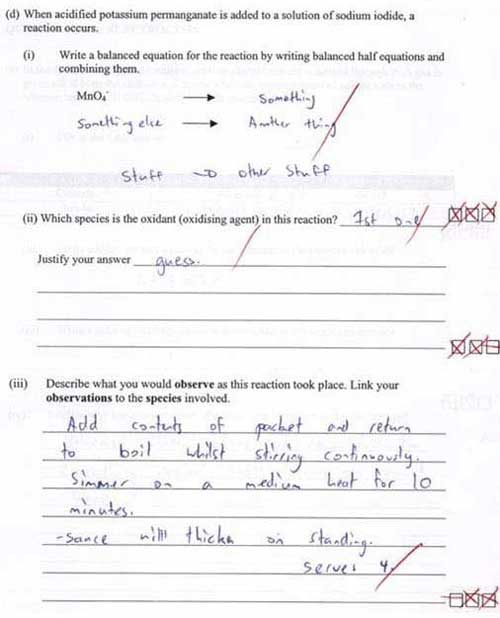 (d) When acidified potassium permanganate is added to a solution of sodium iodide, a
reaction occurs.
(i) Write a balanced equation for the reaction by writing balanced half equations and
combining them.
MnO₄⁻ → Something
Something else → Another thing
Stuff → other stuff
(ii) Which species is the oxidant (oxidising agent) in this reaction? 1st one
Justify your answer guess.
(iii) Describe what you would observe as this reaction took place. Link your
observations to the species involved.
Add contents of packet and return
to boil whilst stirring continuously.
Simmer on a medium heat for 10
minutes.
-sauce will thicken on standing.
serves 4.